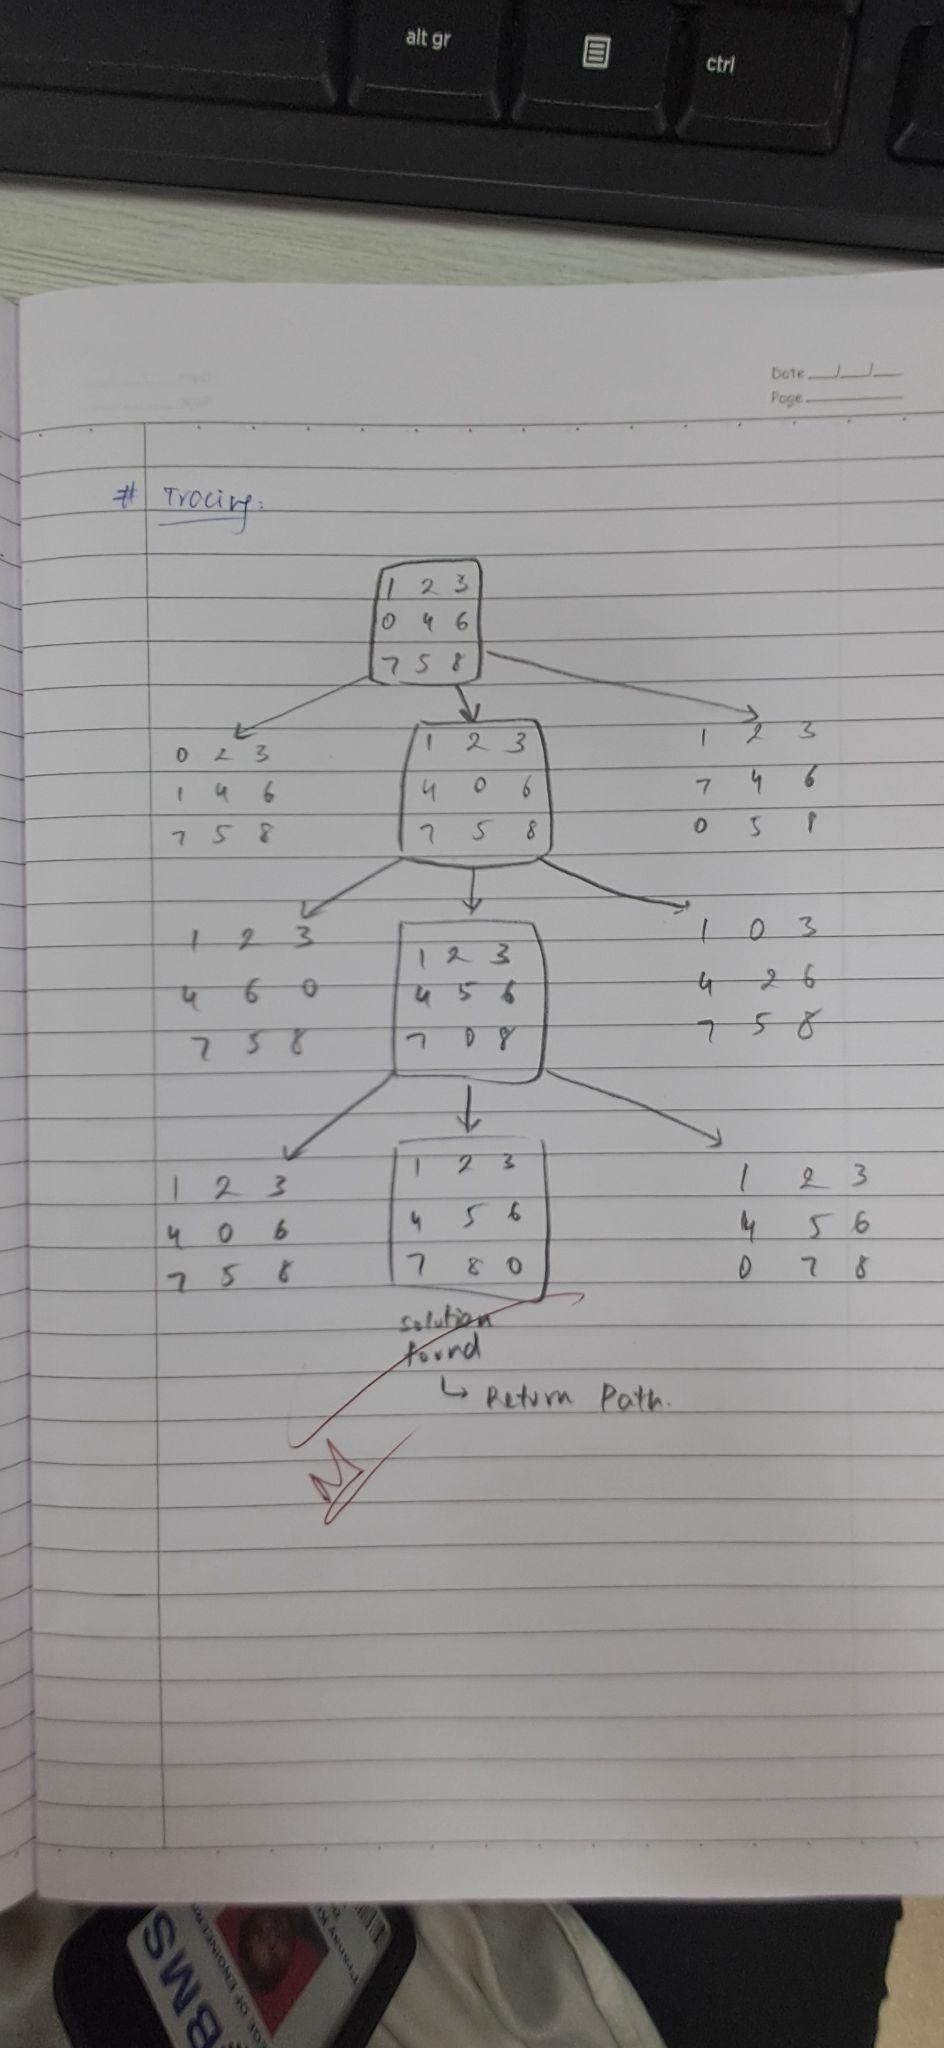 alt gr
ctrl
Date
Page
# Tracing:
1 2 3
0 4 6
7 5 8
0 2 3
1 4 6
7 5 8
1 2 3
4 0 6
7 5 8
1 2 3
7 4 6
0 5 8
1 2 3
4 6 0
7 5 8
1 2 3
4 5 6
7 0 8
1 0 3
4 2 6
7 5 8
1 2 3
4 0 6
7 5 8
1 2 3
4 5 6
7 8 0
1 2 3
4 5 6
0 7 8
solution
found
↳ Return Path.
BMS
OF ENGINEERING